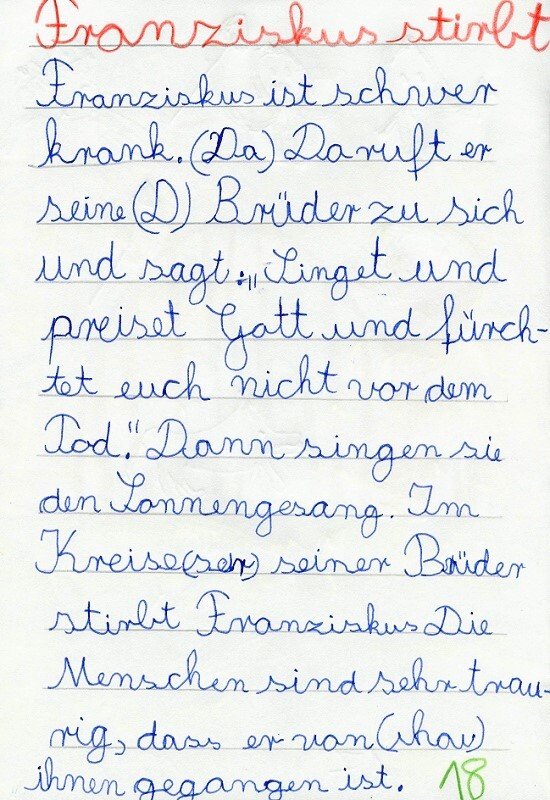 Franziskus stirbt
Franziskus ist schwer
krank. (Da) Da ruft er
seine (D) Brüder zu sich
und sagt: „Singet und
preiset Gott und fürch-
tet euch nicht vor dem
Tod." Dann singen sie
den Sonnengesang. Im
Kreise (ser) seiner Brüder
stirbt Franziskus. Die
Menschen sind sehr trau-
rig, dass er von
ihnen gegangen ist. 18